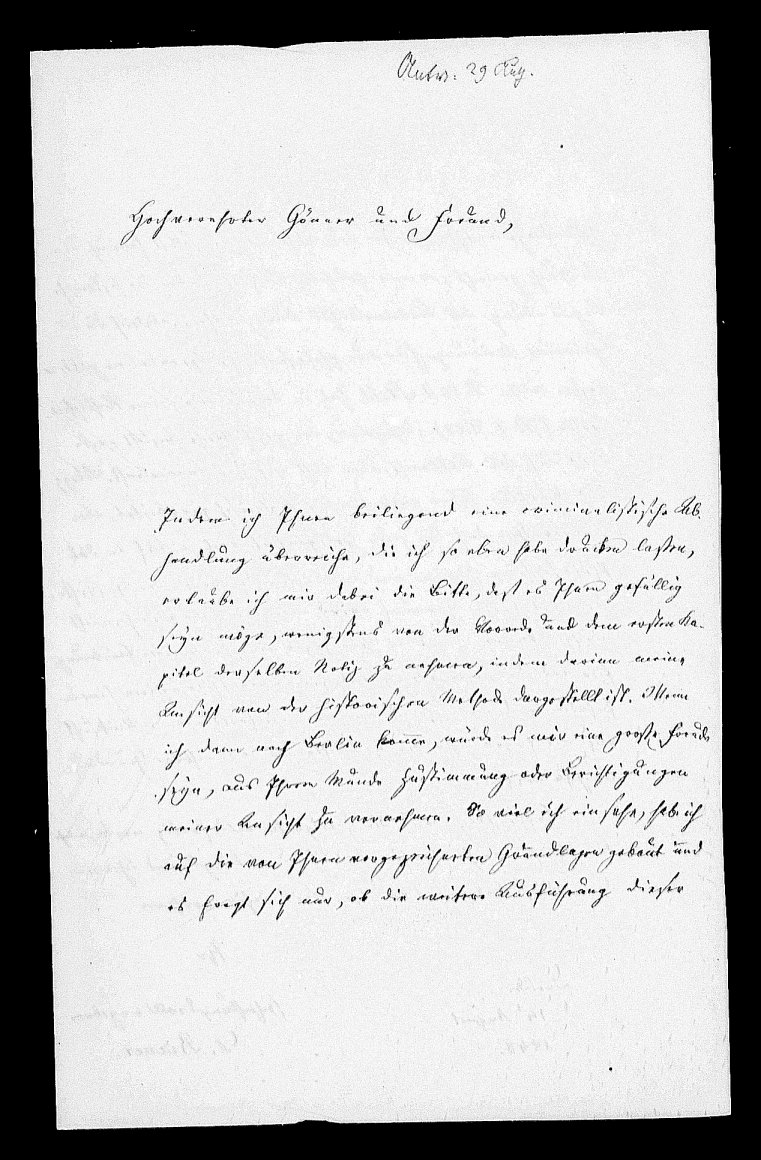 Antw. 29 Aug.
Hochverehrter Gönner und Freund,
Indem ich Ihnen beiliegend eine criminalistische Ab-
handlung überreiche, die ich so eben habe drucken lassen,
erlaube ich mir dabei die Bitte, daß es Ihnen gefällig
seyn möge, wenigstens von der Vorrede und dem ersten Ka-
pitel derselben Notiz zu nehmen, indem darinn meine
Ansicht von der historischen Methode dargestellt ist. Wenn
ich dann nach Berlin komme, würde es mir eine große Freude
seyn, aus Ihrem Munde Zustimmung oder Berichtigungen
meiner Ansicht zu vernehmen. So viel ich einsehe, hab ich
auf die von Ihnen vorgezeichneten Grundlagen gebaut und
es fragt sich nur, ob die weitere Ausführung dieser